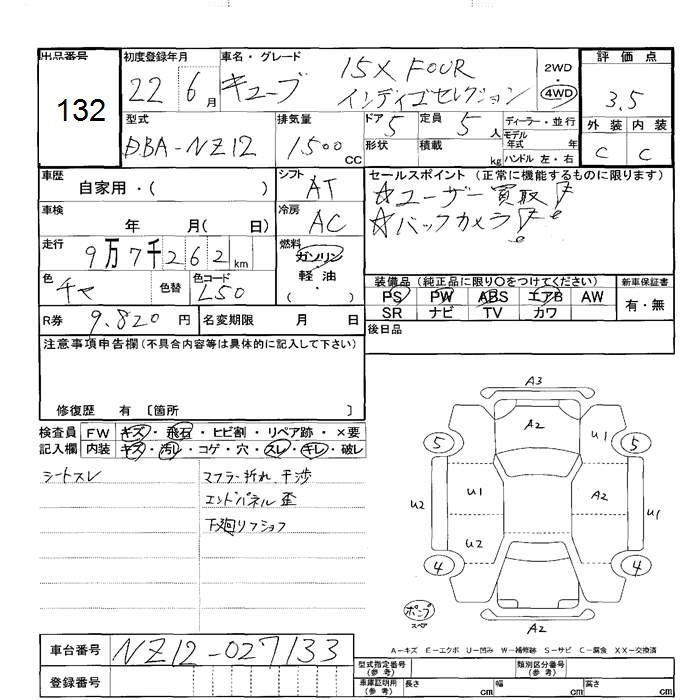 出品番号
132
初度登録年月
22 6月
車名・グレード
キューブ 15X FOUR
インディゴセレクション
2WD
4WD
評価点
3.5
外装 内装
C C
型式
DBA-NZ12
排気量
1.500 CC
ドア 5
形状
定員 5人
積載 kg
ディーラー・並行
モデル年式 年
ハンドル 左・右
車歴
自家用・( )
シフト
AT
セールスポイント(正常に機能するものに限ります)
☆ユーザー買取
☆バックカメラ
車検
年 月( 日)
冷房
AC
走行
9万7千262km
燃料
ガソリン
軽油
( )
色
チャ
色替
色コード
L50
装備品(純正品に限り○をつけてください)
PS PW ABS エアB AW
SR ナビ TV カワ
新車保証書
有・無
R券 9.820円
名変期限 月 日
後日品
注意事項申告欄(不具合内容等は具体的に記入して下さい)
修復歴 有 〔箇所 〕
検査員記入欄
FW キズ・飛石・ヒビ割・リペア跡・×要
内装 キズ・汚レ・コゲ・穴・スレ・キレ・破レ
シートスレ
マフラー折れ、干渉
エンドパネル歪
下廻りフショク
A3
A2
U1
5 5
U2 U1 A2 U1
U2
4 4
ポンプ
スペア
A2
A-キズ E-エクボ U-凹み W-補修跡 S-サビ C-腐食 XX-交換済
車台番号 NZ12-027133
登録番号
型式指定番号(参考)
類別区分番号(参考)
車庫証明用(参考) 長さ cm 幅 cm 高さ cm